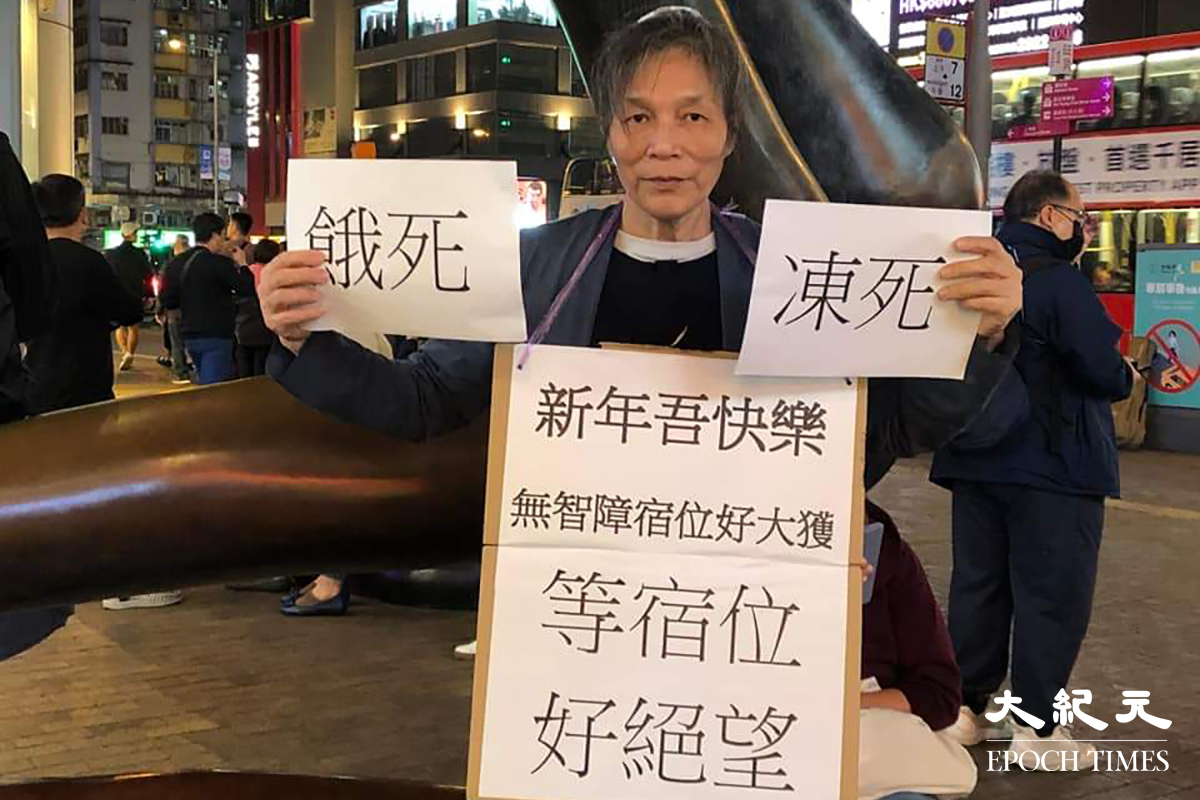 餓死
凍死
新年吾快樂
無智障宿位好大獲
等宿位
好絕望
HK$
7
12
大紀元
EPOCH TIMES